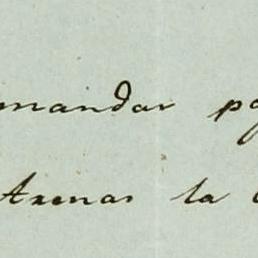 mandar pa
Arenas la